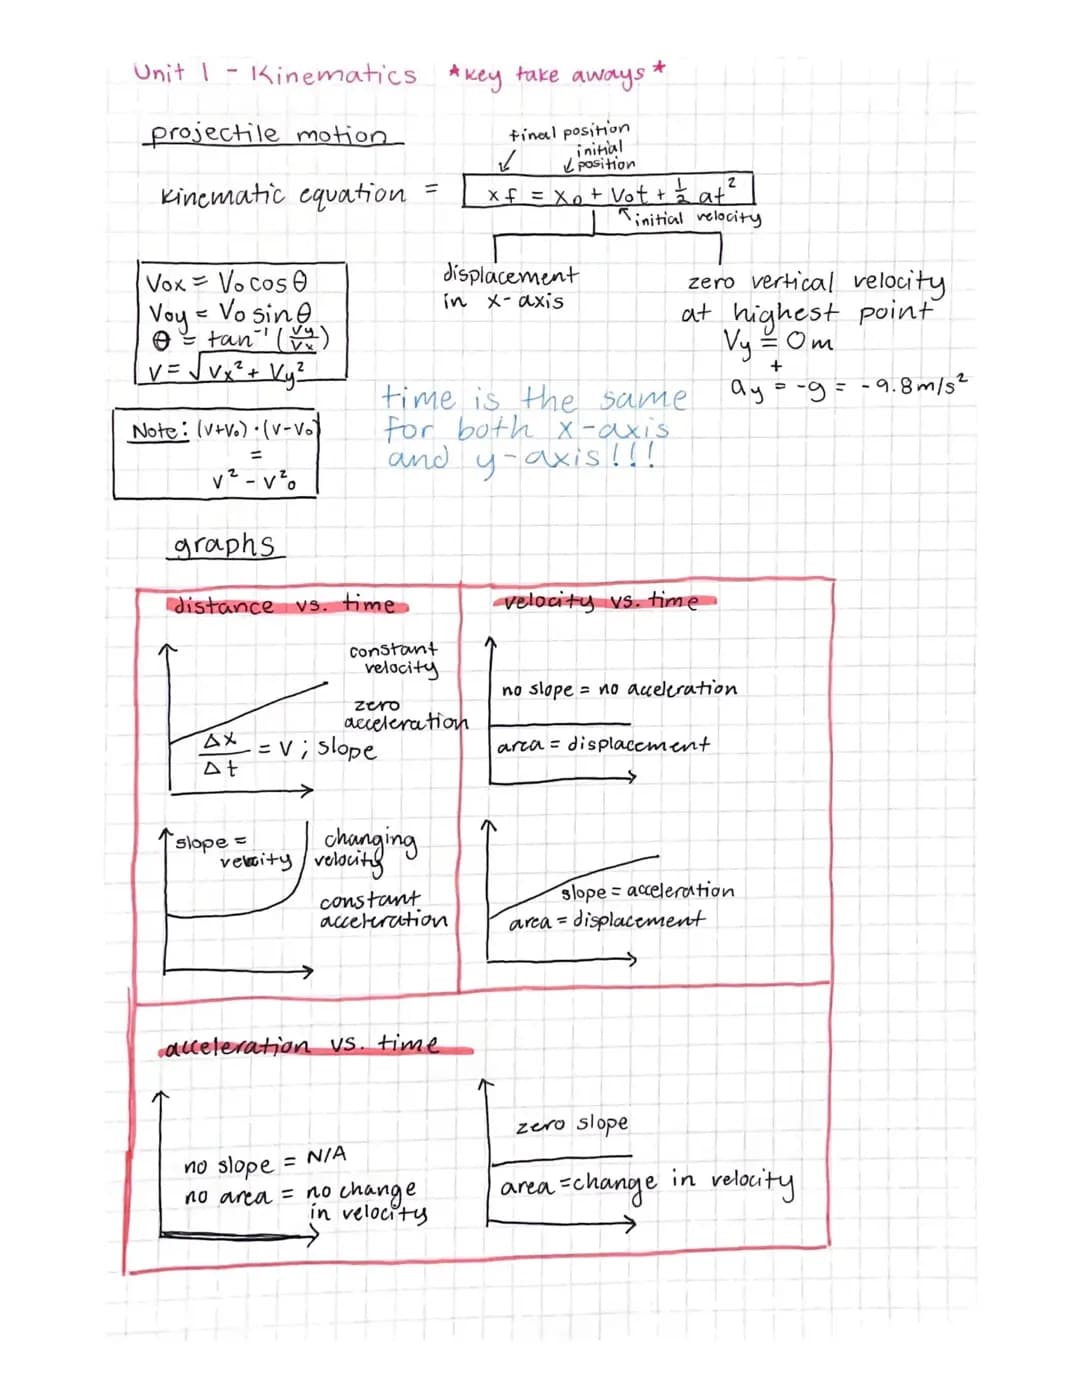 Unit 1 - Kinematics *key take aways*
projectile motion
final position
initial
position
kinematic equation = xf = x₀ + V₀t + ½ at²
initial velocity
displacement
in x-axis
zero vertical velocity
at highest point
Vy = 0m
+
ay = -g = -9.8m/s²
Vox = V₀ cosθ
Voy = V₀ sinθ
θ = tan⁻¹ (Vy/Vx)
V = √Vx² + Vy²
Note: (V+V₀)·(V-V₀)
=
V² - V²₀
time is the same
for both x-axis
and y-axis!!!
graphs
distance vs. time
constant
velocity
zero
acceleration
Δx/Δt = V; slope
slope =
velocity
changing
velocity
constant
acceleration
velocity vs. time
no slope = no acceleration
area = displacement
slope = acceleration
area = displacement
acceleration vs. time
no slope = N/A
no area = no change
in velocity
zero slope
area = change in velocity